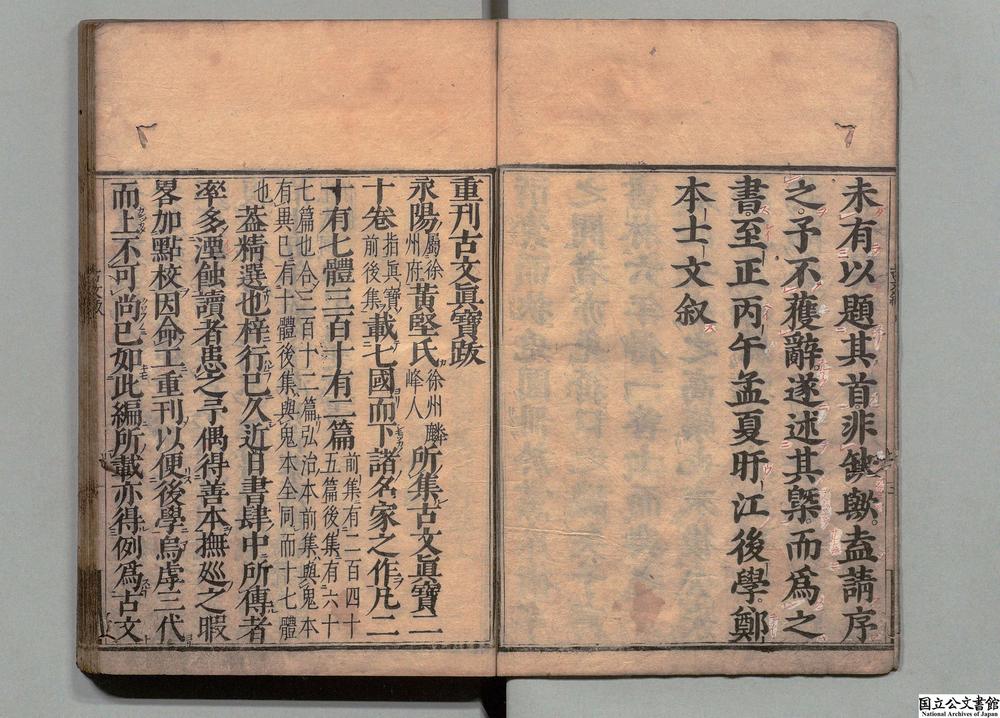 未有以題其首非缺歟盍請序
之予不獲辭遂述其槩而爲之
書至正丙午孟夏旴江後學鄭
本士文叙
重刊古文眞寶跋
永陽屬徐州府黃堅氏徐州麟峰人所集古文眞寶二
十卷指眞寶前後集載七國而下諸名家之作凡二
十有七體三百十有二篇前集有二百四十五篇後集有六十
七篇也合三百十二篇弘治本前集與鬼本有異已有十體後集與鬼本全同而十七體
也蓋精選也梓行已久近日書肆中所傳者
率多湮蝕讀者患之予偶得善本撫廵之暇
畧加點校因命工重刊以便後學烏虖三代
而上不可尚已如此編所載亦得例爲古文
国立公文書館
National Archives of Japan